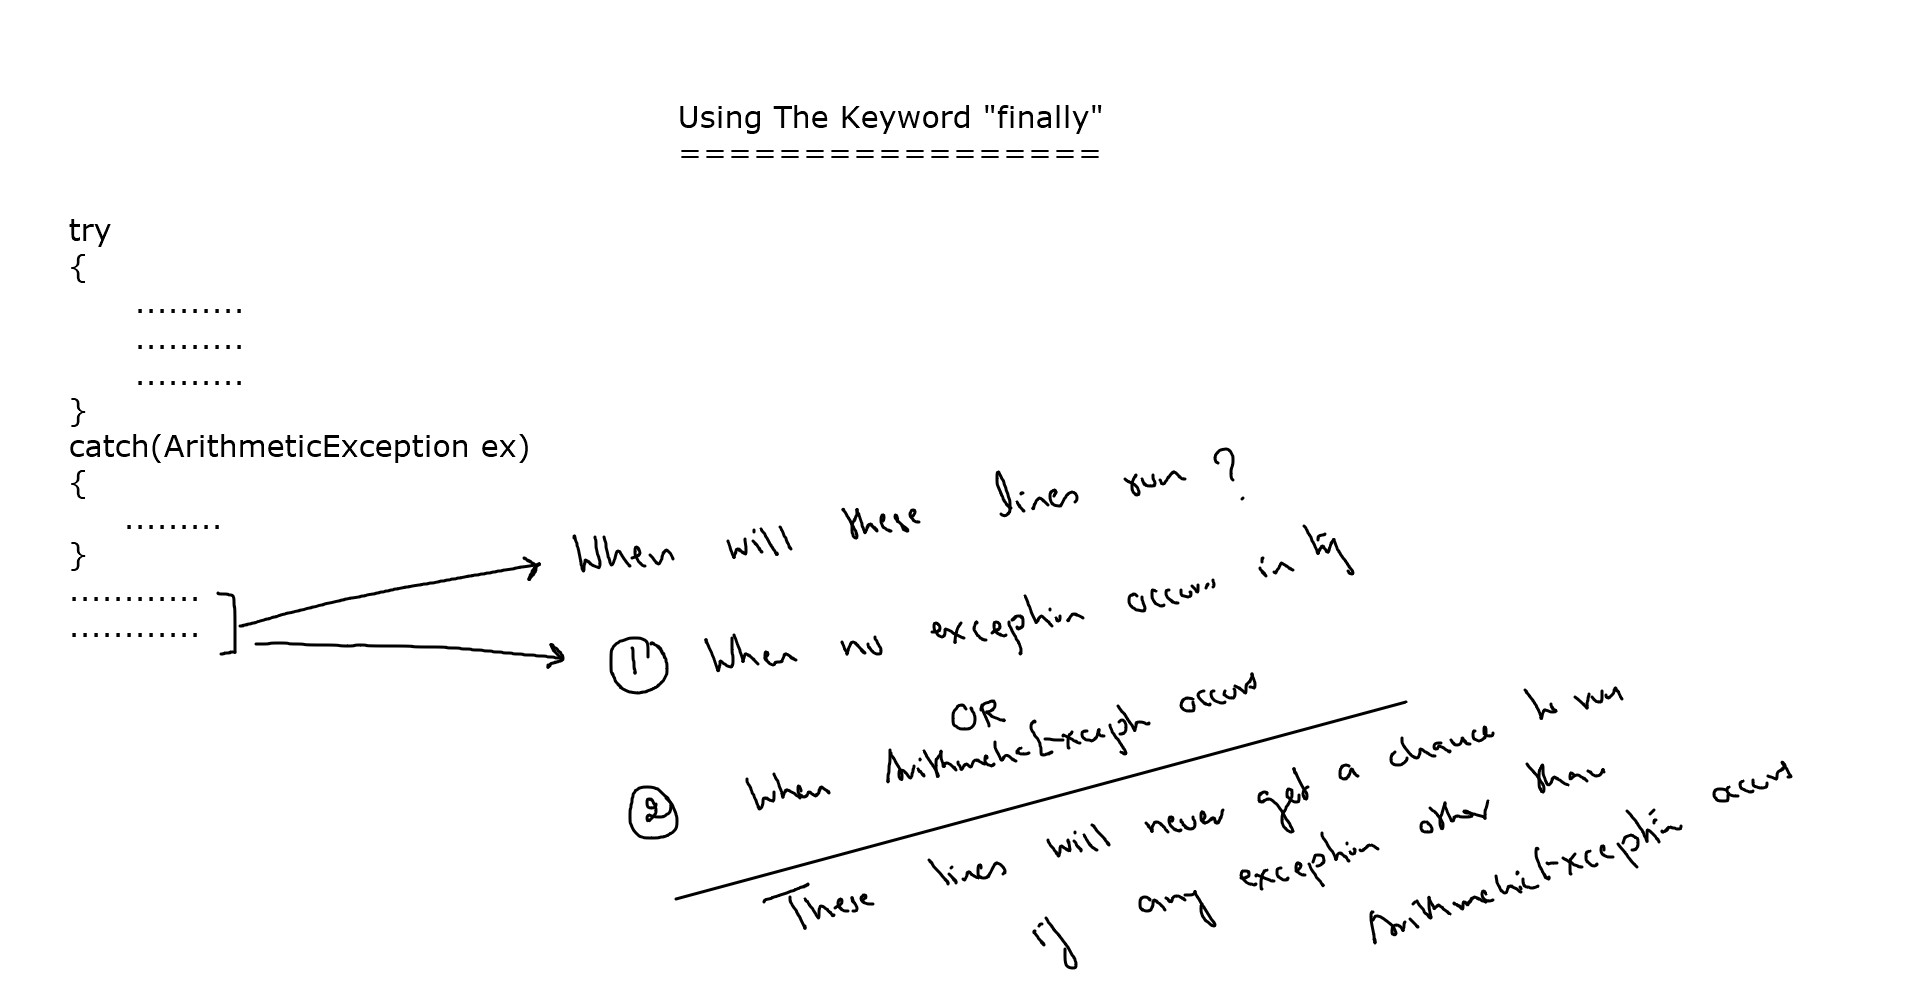 Using The Keyword "finally"
=================
try
{
..........
..........
..........
}
catch(ArithmeticException ex)
{
.........
}
............
............
When will these lines run ?
① When no exception occurs in try
OR
② When ArithmeticExceptn occurs
These lines will never get a chance to run
if any exception other than
ArithmeticException occurs